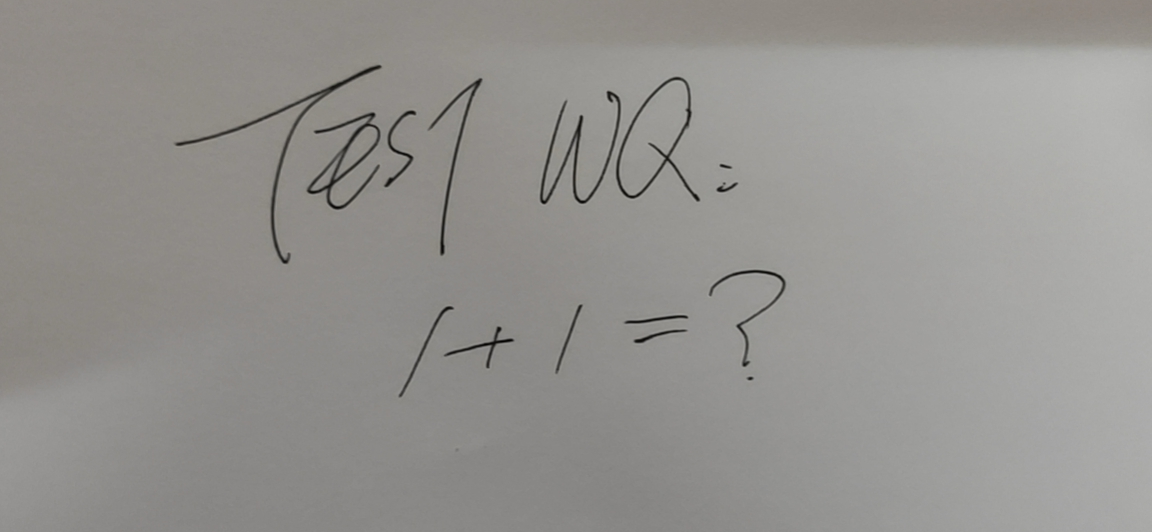 Test WQ:
1+1=?